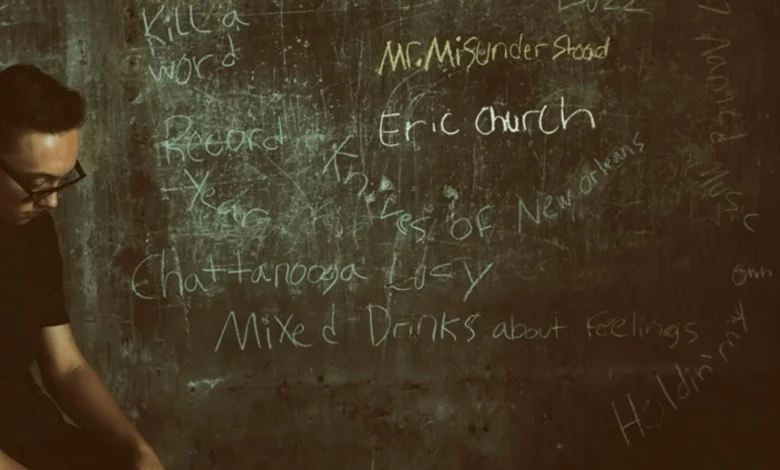 Kill a
word
2022
Mr. Misunderstood
Eric Church
Record
Year
Knives of New Orleans
Chattanooga Lucy
Mixed Drinks about Feelings
Holdin' my
Own